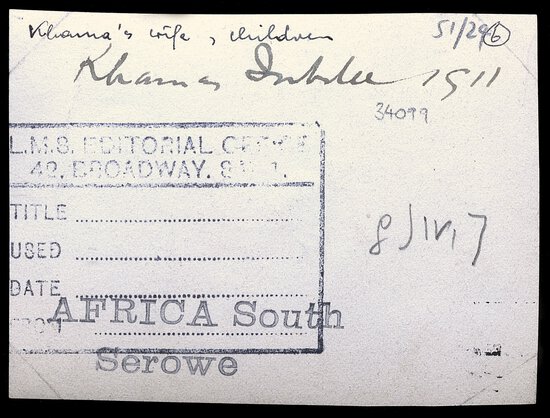 Khama's wife, children
51/29 6
Khama's Jubilee 1911
34099
L.M.S. EDITORIAL OFFICE
42, BROADWAY, S.W.1.
TITLE
USED
DATE
FROM
AFRICA South
Serowe